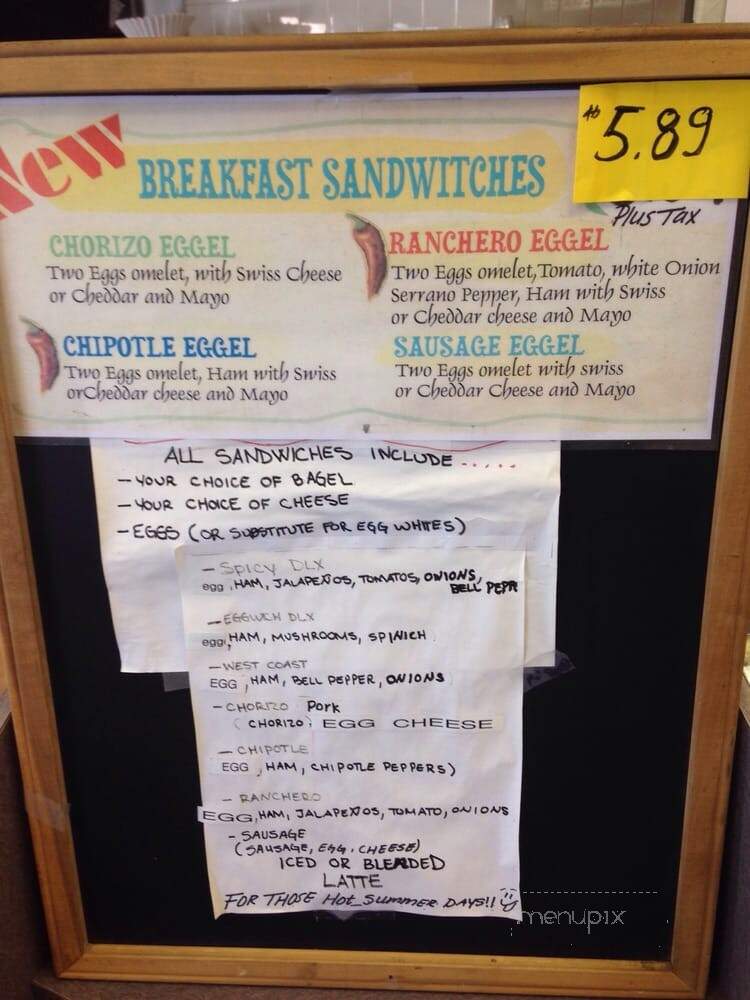 New
BREAKFAST SANDWITCHES
5.89
Plus Tax
CHORIZO EGGEL
Two Eggs omelet, with Swiss Cheese
or Cheddar and Mayo
RANCHERO EGGEL
Two Eggs omelet, Tomato, white Onion
Serrano Pepper, Ham with Swiss
or Cheddar cheese and Mayo
CHIPOTLE EGGEL
Two Eggs omelet, Ham with Swiss
orCheddar cheese and Mayo
SAUSAGE EGGEL
Two Eggs omelet with swiss
or Cheddar Cheese and Mayo
ALL SANDWICHES INCLUDE.....
- YOUR CHOICE OF BAGEL
- YOUR CHOICE OF CHEESE
- EGGS (OR SUBSTITUTE FOR EGG WHITES)
- SPICY DLX
egg, HAM, JALAPEÑOS, TOMATOS, ONIONS,
BELL PEPR
- EGGWICH DLX
egg, HAM, MUSHROOMS, SPINICH
- WEST COAST
EGG, HAM, BELL PEPPER, ONIONS
- CHORIZO Pork
(CHORIZO, EGG CHEESE
- CHIPOTLE
EGG, HAM, CHIPOTLE PEPPERS)
- RANCHERO
EGG, HAM, JALAPEÑOS, TOMATO, ONIONS
- SAUSAGE
(SAUSAGE, EGG, CHEESE)
ICED OR BLENDED
LATTE
FOR THOSE HOT SUMMER DAYS!!
menupix